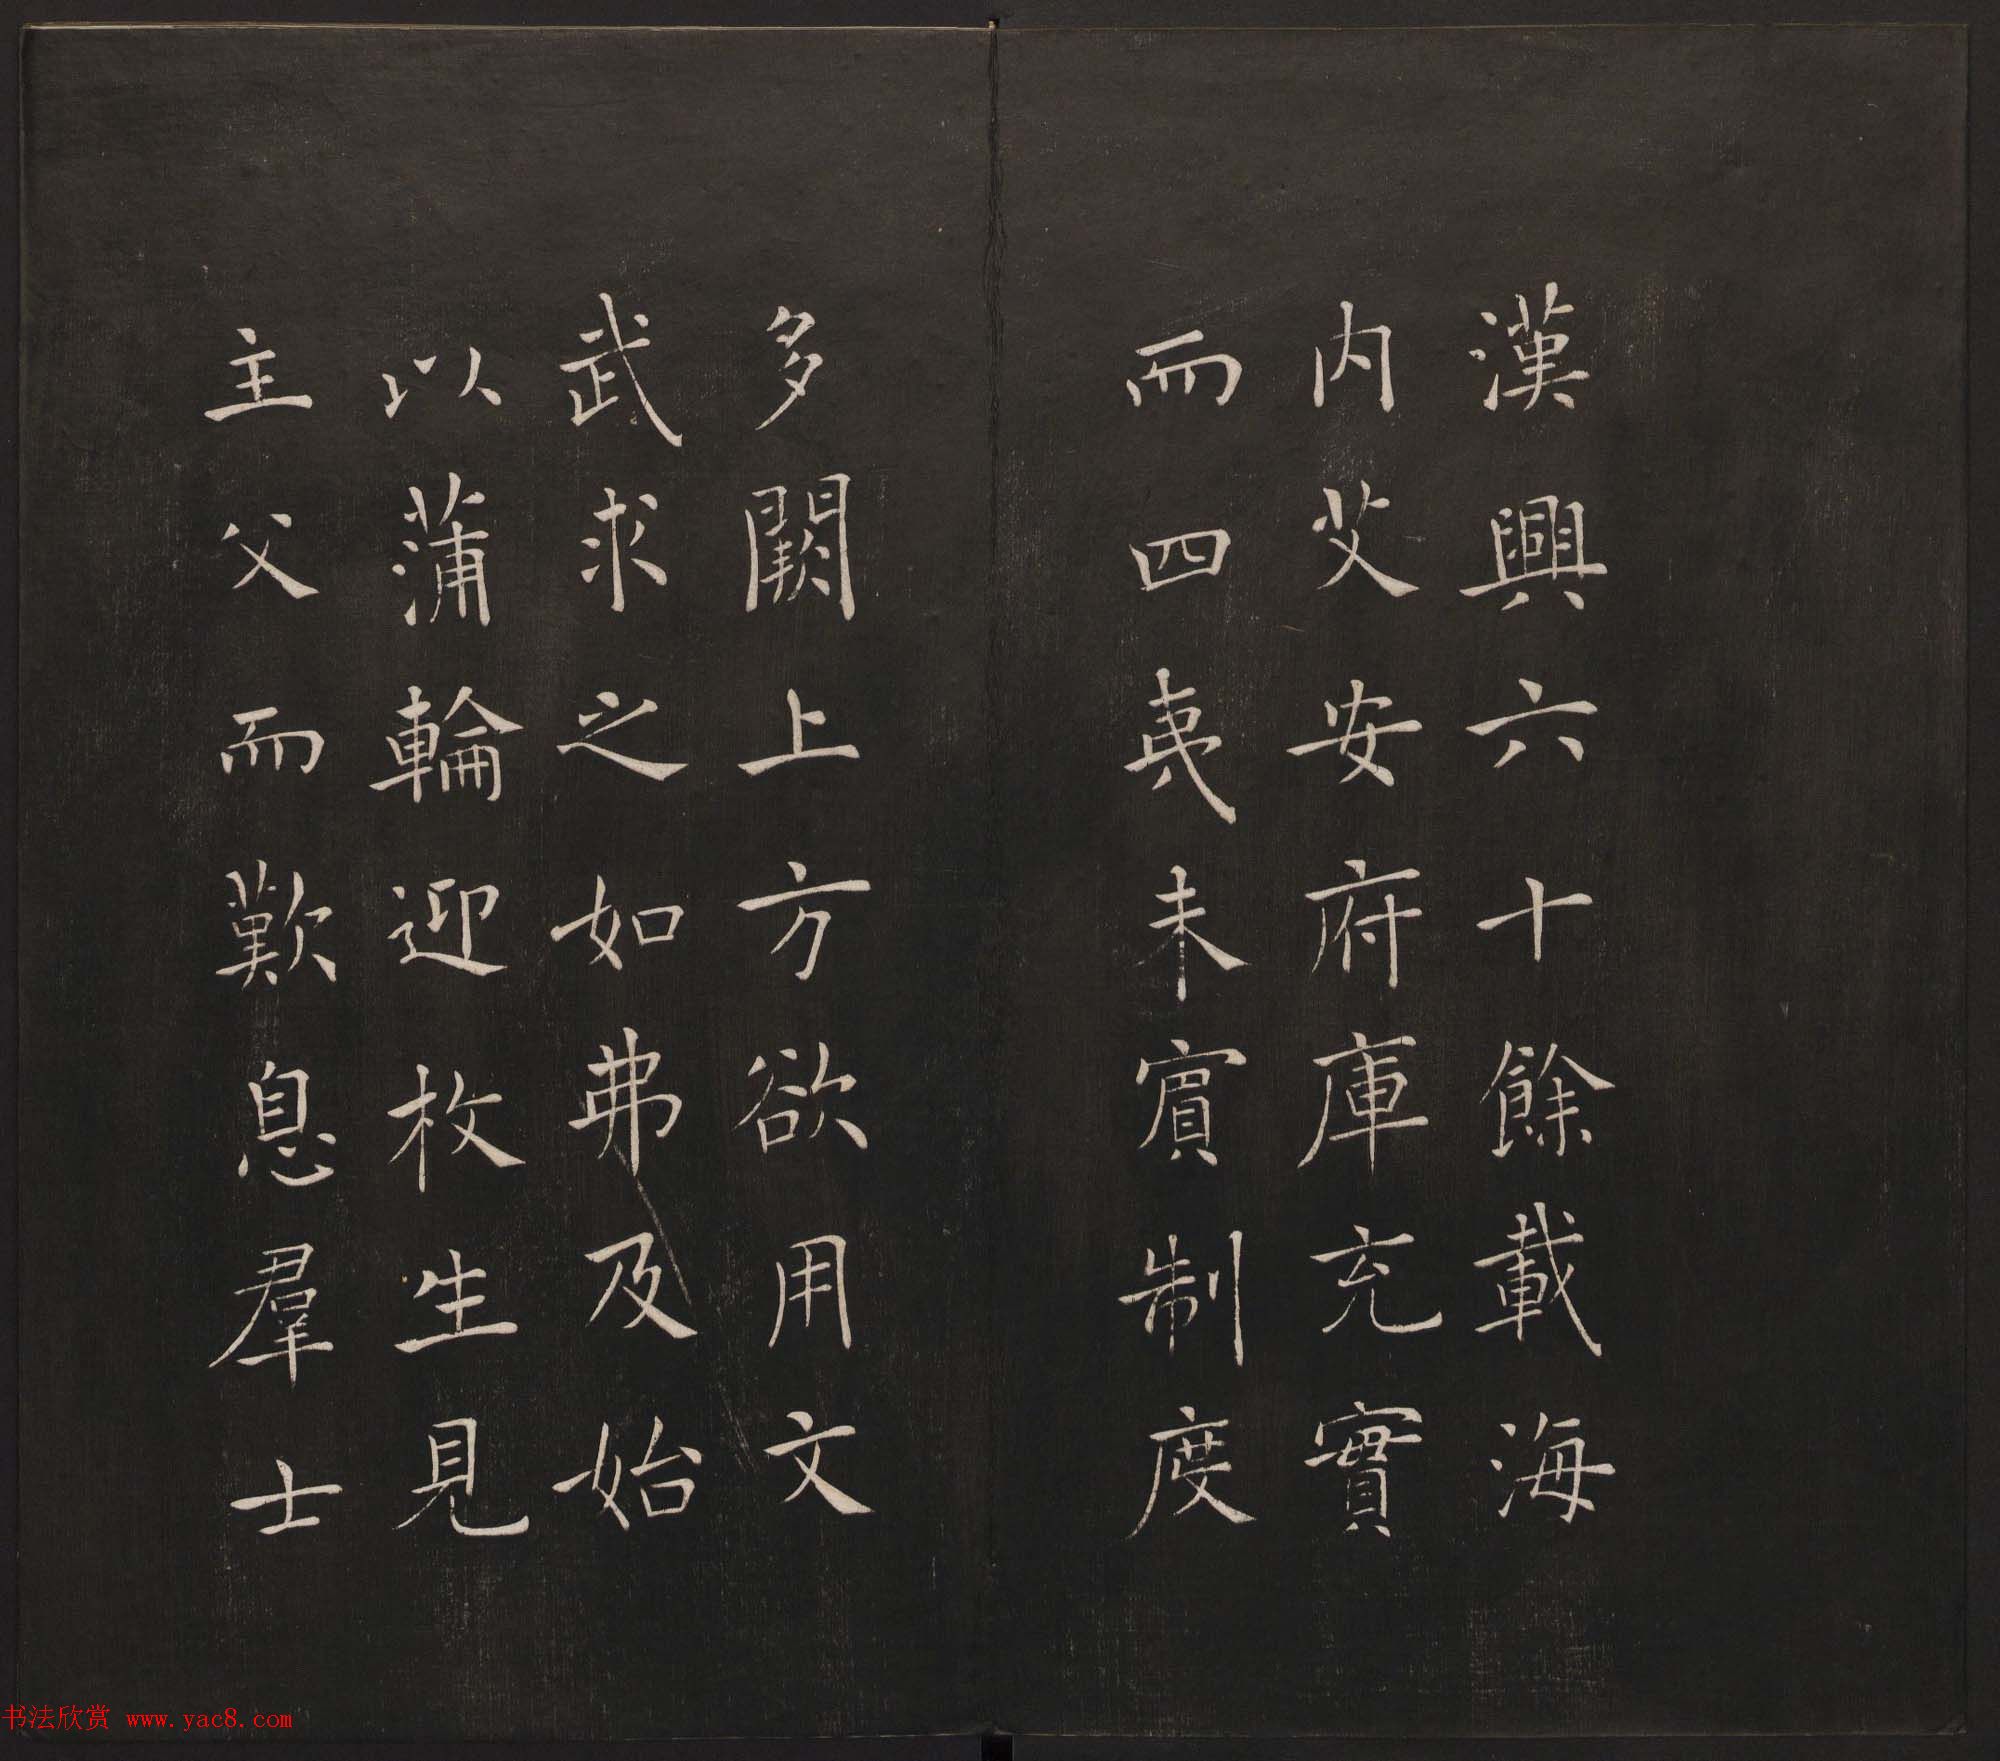 漢興六十餘載海
内艾安府庫充實
而四夷未賓制度
多闕上方欲用文
武求之如弗及始
以蒲輪迎枚生見
主父而歎息羣士
书法欣赏 www.yac8.com